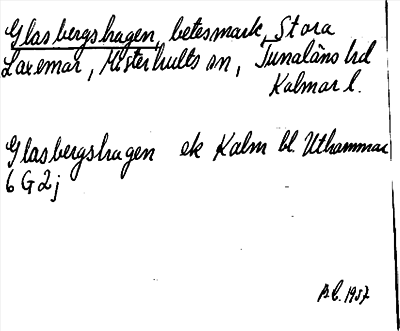 Glasbergshagen, betesmark, Stora
Laxemar, Misterhults sn, Tunaläns hd
Kalmar l.
Glasbergshagen ek Kalm bl. Uthammar
6 G 2j
1957